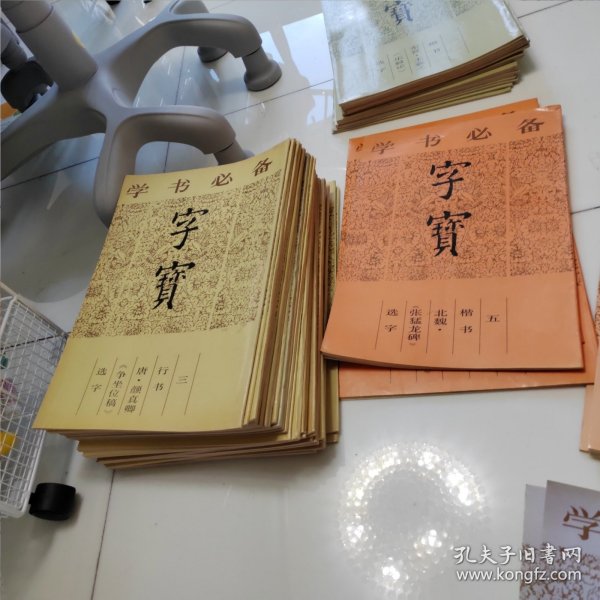 學书必备
字寶
三
行书
唐·颜真卿
《争坐位稿》
选字
学书必备
字寶
五
楷书
北魏·
《张猛龙碑》
选字
寶
楷书
选字
学
孔夫子旧书网
www.kongfz.com